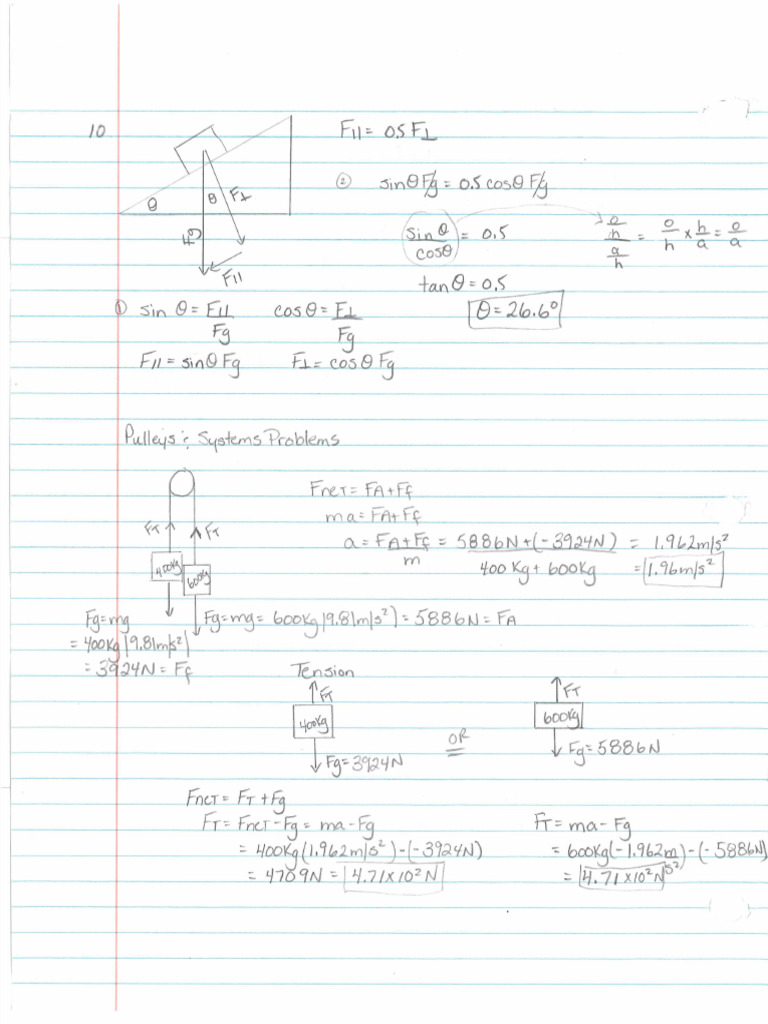 10
F|| = 0.5 F⊥
② sinθ Fg = 0.5 cosθ Fg
θ
θ
F⊥
Fg
F||
sinθ / cosθ = 0.5
o/h / a/h = o/h × h/a = o/a
tanθ = 0.5
θ = 26.6°
① sin θ = F|| / Fg cosθ = F⊥ / Fg
F|| = sinθ Fg F⊥ = cosθ Fg
Pulleys & Systems Problems
FNET = FA + Ff
ma = FA + Ff
a = FA + Ff / m = 5886N + (-3924N) / 400 Kg + 600Kg = 1.962 m/s²
= 1.96 m/s²
FT FT
400Kg 600Kg
Fg = mg
= 400Kg (9.81 m/s²)
= 3924N = Ff
Fg = mg = 600Kg (9.81 m/s²) = 5886N = FA
Tension
FT
400Kg
Fg = 3924N
OR
FT
600Kg
Fg = 5886N
FNET = FT + Fg
FT = FNET - Fg = ma - Fg
= 400Kg (1.962 m/s²) - (-3924N)
= 4709N = 4.71 x 10² N
FT = ma - Fg
= 600Kg (-1.962 m/s²) - (-5886N)
= 4.71 x 10² N